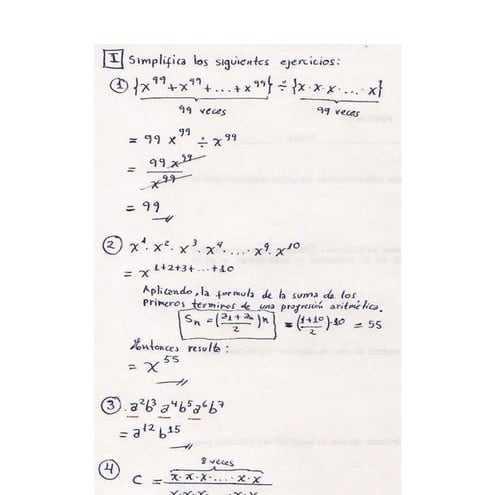 I Simplifica los siguientes ejercicios:
① {x⁹⁹ + x⁹⁹ + ... + x⁹⁹} ÷ {x · x · x · ... · x}
99 veces 99 veces
= 99 x⁹⁹ ÷ x⁹⁹
= 99 x⁹⁹ / x⁹⁹
= 99
② x¹ · x² · x³ · x⁴ · ... · x⁹ · x¹⁰
= x¹⁺²⁺³⁺···⁺¹⁰
Aplicando, la formula de la suma de los
Primeros terminos de una progresión aritmética.
Sₙ = (a₁ + aₙ / 2) n = (1+10 / 2) · 10 = 55
Entonces resulta:
= x⁵⁵
③ a²b³ a⁴b⁵ a⁶b⁷
= a¹² b¹⁵
④ 8 veces
C = x · x · x · ... · x · x
x · x · x · ... · x · x